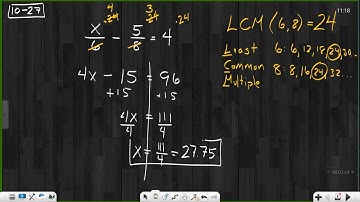 10-27
11:18
4 3
·24 ·24 ·24
x/6 - 5/8 = 4
LCM (6,8) = 24
Least 6: 6, 12, 18, 24, 30...
Common 8: 8, 16, 24, 32...
Multiple
4x - 15 = 96
+15 +15
4x/4 = 111/4
x = 111/4 = 27.75